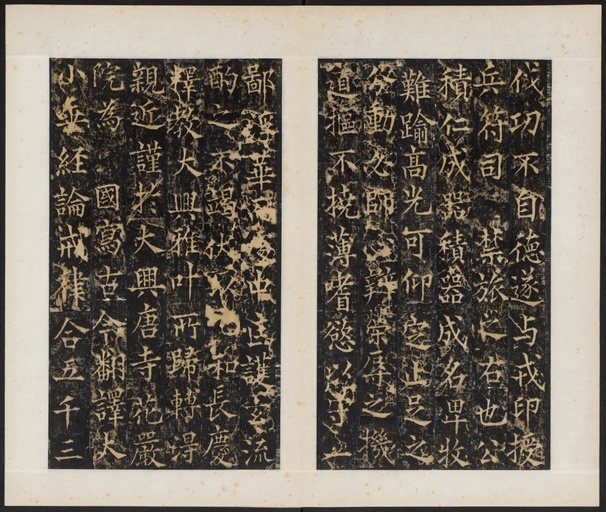 伐功不自德遂与戎印授
兵符司 禁旅之右也公
積仁成器積器成名卑牧
難踰高光可仰定止足之
分動必師心辯榮辱之機
道摳不撓薄嗜慾以
鄙浮華而
酌之不竭伏以 和長慶
釋教大興雅叶所歸轉得
親近謹於大興唐寺花嚴
院為 國寫古今翻譯大
小乘經論戒律合五千三